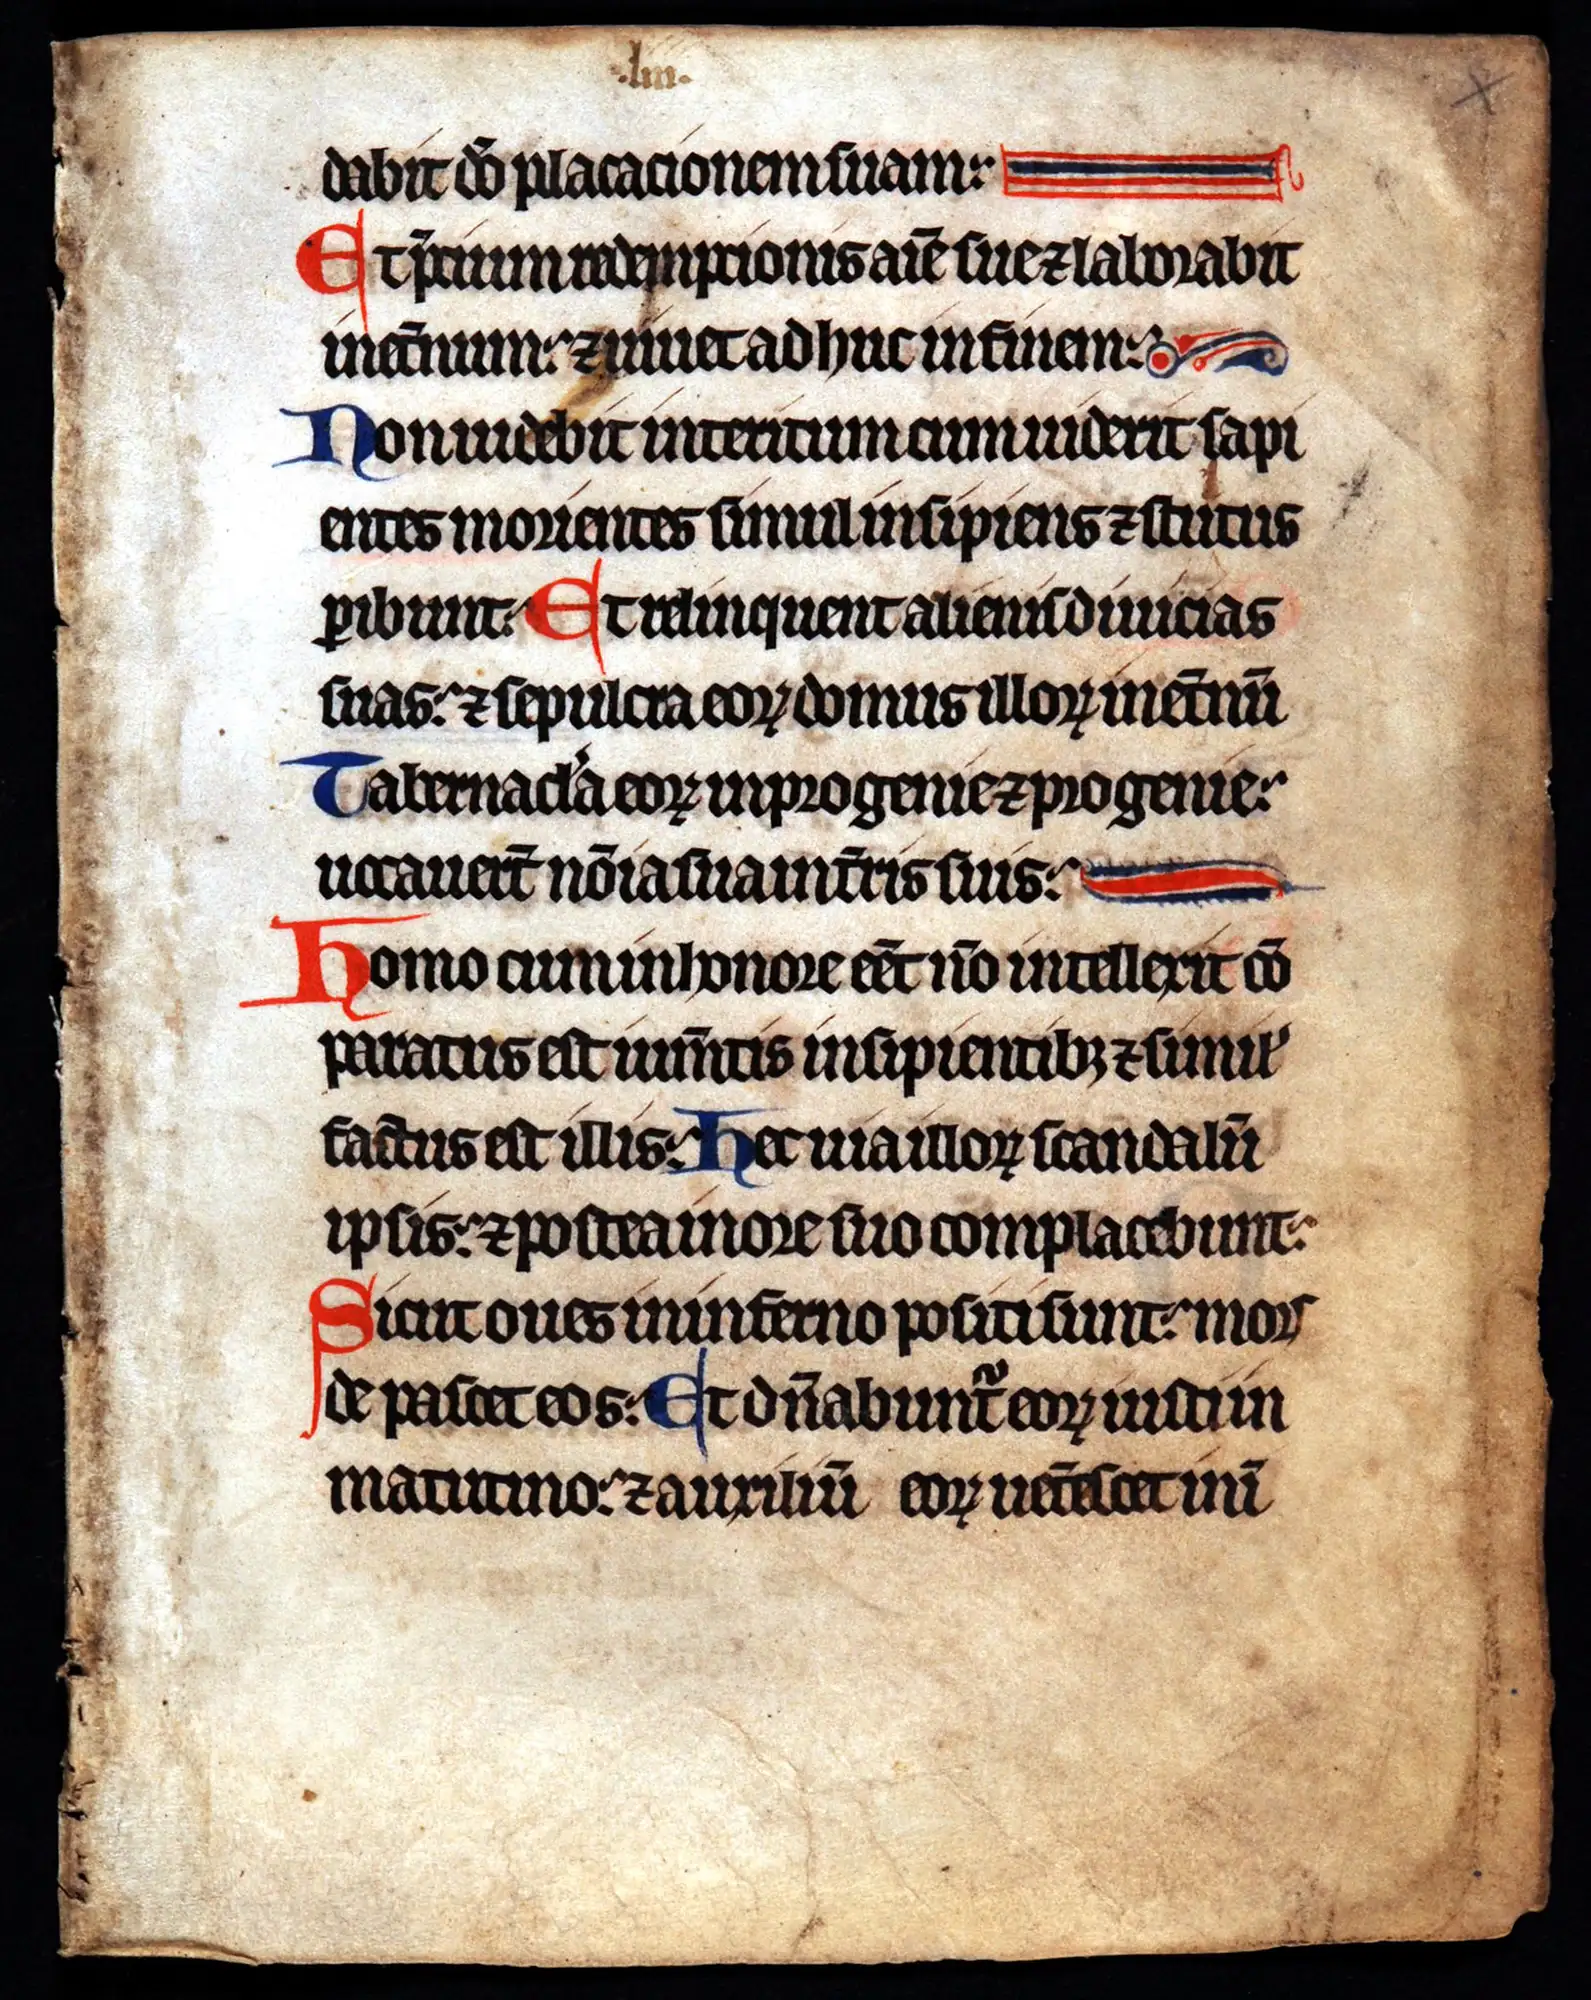 .liii.
dabit dō placacionem suam:
Et p̄cium redemptionis aīe sue ⁊ laborabit
inet̄num: ⁊ uiuet adhuc in finem:
Non uidebit interitum cum uiderit sapi
entes morientes simul insipiens ⁊ stultus
ꝑibunt: Et relinquent alienis diuicias
suas: ⁊ sepulcra eoꝝ domus illoꝝ inet̄nū
Tabernacl'a eoꝝ in progenie ⁊ progenie:
uocauert̄ nōīa sua in t̄ris suis:
Homo cum in honore eēt nō intellexit cō
paratus est ium̄tis insipientibꝫ ⁊ simil'
factus est illis: Hec uia illoꝝ scandalū
ipsis: ⁊ postea in ore suo complacebunt:
Sicut oues in inferno positi sunt: mors
depascet eos: Et dn̄abunt̄ᷣ eoꝝ iusti in
matutino: ⁊ auxiliū eoꝝ uet̄escet in ī